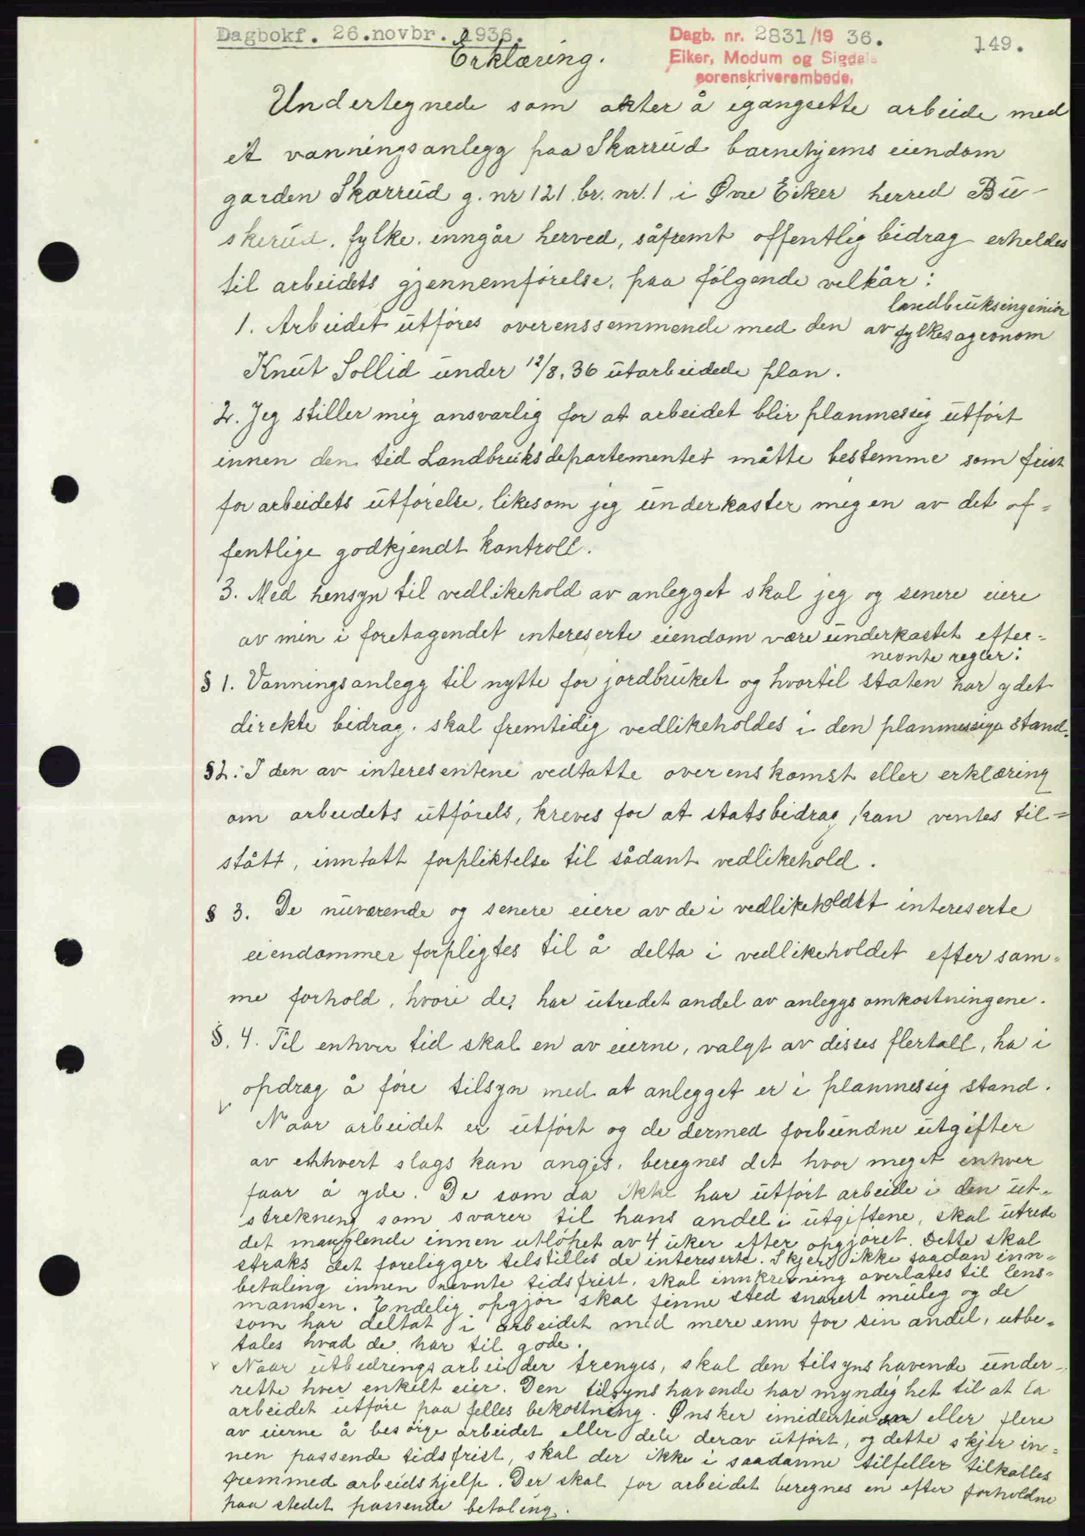 Dagbokf. 26.novbr. 1936.
Dagb. nr. 2831/19 36.
149.
Eiker, Modum og Sigdals
sorenskriverembede.
Erklæring.
Undertegnede som akter å igangsette arbeide med
et vanningsanlegg paa Skarrud barnehjems eiendom
garden Skarrud g. nr 121 br. nr. 1 i Øvre Eiker herred Bu-
skerud fylke. inngår herved, såfremt offentlig bidrag erheldes
til arbeidets gjennemförelse, paa fölgende velkår:
landbruksingeniör
1. Arbeidet utföres overenssemmende med den av fylkesagronom
Knut Sollid under 12/8. 36 utarbeidede plan.
2. Jeg stiller mig ansvarlig for at arbeidet blir planmessig utfört
innen den tid Landbruksdepartementet måtte bestemme som frist
for arbeidets utförelse, likesom jeg underkaster mig en av det of=
fentlige godkjendt kontroll.
3. Med hensyn til vedlikehold av anlegget skal jeg og senere eiere
av min i foretagendet intereserte eiendom være underkastet efter=
nevnte regler:
§ 1. Vanningsanlegg til nytte for jordbruket og hvortil staten har ydet
direkte bidrag. skal fremtidig vedlikeholdes i den planmessige stand.
§ 2. I den av interesentene vedtatte overenskomst eller erklæring
om arbeidets utförels, kreves for at statsbidrag kan ventes til=
stått, inntatt forpliktelse til sådant vedlikehold.
§ 3. De nuværende og senere eiere av de i vedlikeholdet intereserte
eiendommer forpligtes til å delta i vedlikeholdet efter sam=
me forhold, hvori de, har utredet andel av anleggsomkostningene.
§. 4. Til enhver tid skal en av eierne, valgt av disses flertall, ha i
opdrag å före tilsyn med at anlegget er i planmessig stand.
Naar arbeidet er utfört og de dermed forbundne utgifter
av ethvert slags kan angis, beregnes det hvor meget enhver
faar å yde. De som da ikke har utfört arbeide i den ut=
strekning som svarer til hans andel i utgiftene, skal utrede
det manglende innen utlöpet av 4 uker efter opgjöret. Dette skal
straks det foreligger telstilles de intereserte. Skjer ikke saadan inn=
betaling innen nevnte tidsfrist, skal innkrevning overlates til lens=
mannen. Endelig opgjör skal finne sted snarest mulig og de
som har deltat i arbeidet med mere enn for sin andel, utbe=
tales hvad de har til gode.
Naar utbedringsarbeider trenges, skal den tilsynshavende under-
rette hver enkelt eier. Den tilsynshavende har myndighet til at la
arbeidet utföre paa felles bekostning. Ønsker imidlertid eller flere
av eierne å besörge arbeidet eller dele derav utfört, og dette skjer in=
nen passende tidsfrist, skal der ikke i saadanne tilfeller tilkalles
fremmed arbeidshjelp. Der skal for arbeidet beregnes en efter forholdne
paa stedet passende betaling.